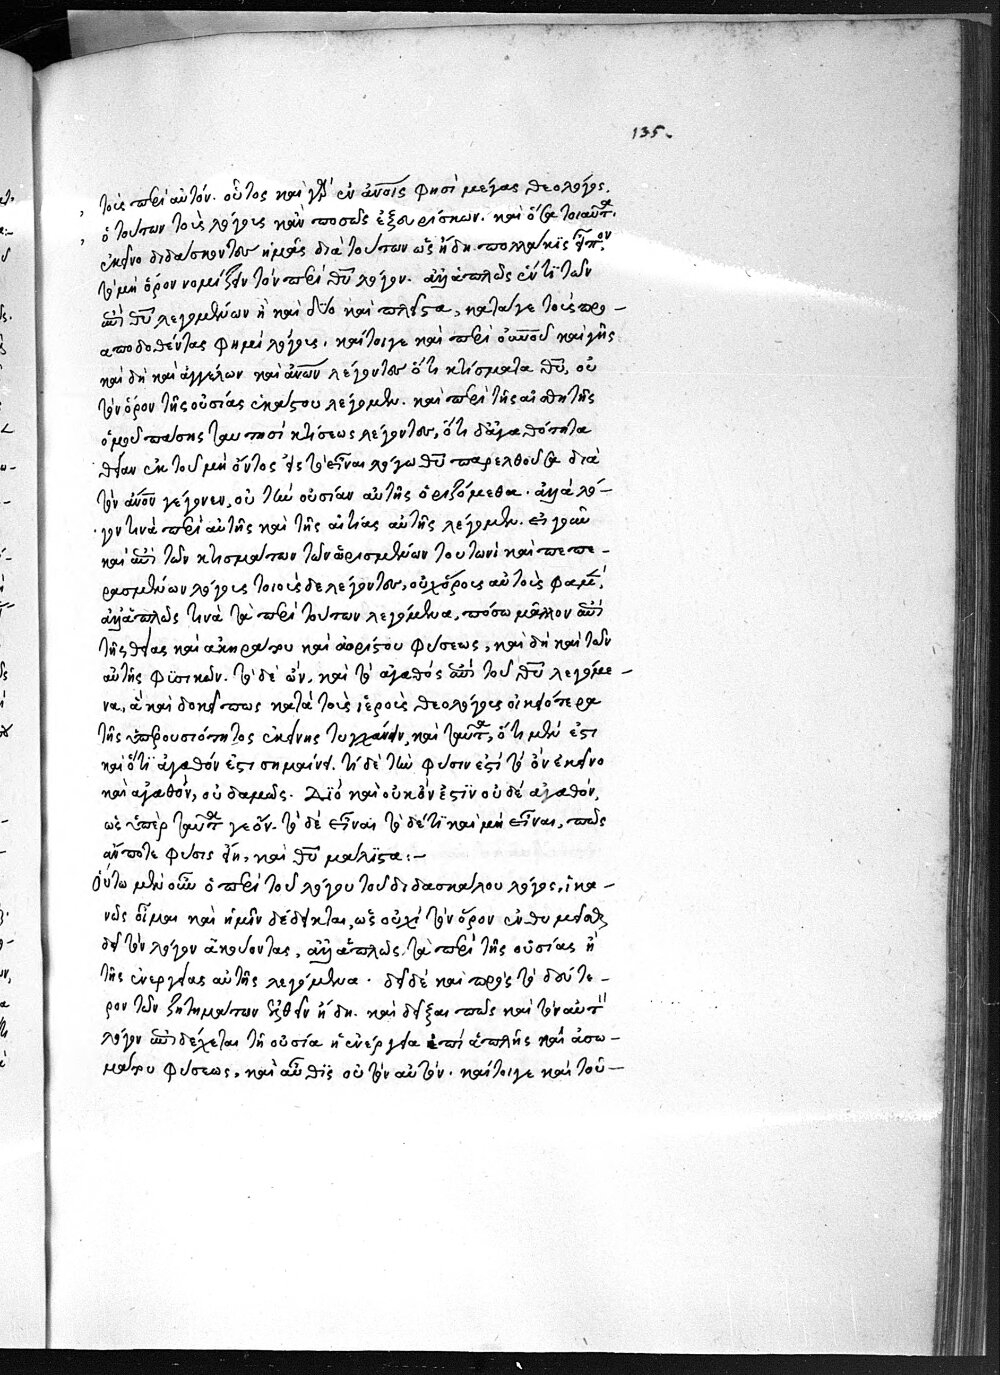 135.
τοῖς περὶ αὐτόν. οὗτος καὶ γὰρ ἐν ἀνοις φησὶ μέγας θεολόγος.
ὁ τούτων τοὺς λόγους κἂν ποσῶς ἐξευρίσκων. καὶ ὅσα τοιαῦτα.
ἐκεῖνο διδάσκοντος ἡμᾶς διὰ τούτων ὡς ἤδη πολλάκις
τὸ μὴ ὅρον νομίζειν τὸν περὶ θυ λόγον. ἀλλ' ἁπλῶς ἕν τι τῶν
ἐπὶ θυ λεγομένων ἢ καὶ δύο καὶ πλεῖστα, κατά γε τοὺς προ –
αποδοθέντας φημὶ λόγους. καίτοιγε καὶ περὶ οὐνοῦ καὶ γῆς
καὶ δὴ καὶ ἀγγέλων καὶ ἀνων λέγοντες ὅτι κτίσματα θυ, οὐ
τὸν ὅρον τῆς οὐσίας ἑκάστου λέγομεν. καὶ περὶ τῆς αἰσθητῆς
ὁμοῦ πάσης ταυτησὶ κτίσεως λέγοντες, ὅτι δι' ἀγαθότητα
θείαν ἐκ τοῦ μὴ ὄντος εἰς τὸ εἶναι λόγω θυ παρελθοῦσα διὰ
τὸν ἀνον γέγονεν, οὐ τὴν οὐσίαν αὐτῆς ὁριζόμεθα. ἀλλὰ λό –
γον τινὰ περὶ αὐτῆς καὶ τῆς αἰτίας αὐτῆς λέγομεν. εἰ γοῦν
καὶ ἐπὶ τῶν κτισμάτων τῶν ὡρισμένων τουτωνὶ καὶ πεπε –
ρασμένων λόγους τοιούσδε λέγοντες, οὐχ ὅρους αὐτοὺς φαμέν,
ἀλλ' ἁπλῶς τινὰ τὰ περὶ τούτων λεγόμενα, πόσω μᾶλλον ἐπὶ
τῆς θείας καὶ ἀκηράτου καὶ ἀορίστου φύσεως, καὶ δὴ καὶ τῶν
αὐτῆς φυσικῶν. τὸ δὲ ὤν, καὶ τὸ ἀγαθός ἐπὶ τοῦ θυ λεγόμε –
να, ἃ καὶ δοκεῖ πως κατὰ τοὺς ἱεροὺς θεολόγους οἰκειότερα
τῆς ὑπερουσιότητος ἐκείνης τυγχάνειν, καὶ ταῦτα, ὅτι μέν ἐστι
καὶ ὅτι ἀγαθόν ἐστι σημαίνει. τί δὲ τὴν φύσιν ἐστὶ τὸ ὂν ἐκεῖνο
καὶ ἀγαθόν, οὐδαμῶς. Διὸ καὶ οὐκ ὄν ἐστιν οὐδὲ ἀγαθόν,
ὡς ὑπὲρ ταῦτά γε ὄν. τὸ δὲ εἶναι τὸ δέ τι καὶ μὴ εἶναι, πῶς
ἄν ποτε φύσις εἴη, καὶ θυ μάλιστα: –
Οὕτω μὲν οὖν ὁ περὶ τοῦ λόγου τοῦ διδασκάλου λόγος, ἱκα –
νῶς οἶμαι καὶ ἡμῖν δέδεικται, ὡς οὐχὶ τὸν ὅρον ἐνθυμεῖσθαι
δεῖ τὸν λόγον ἀκούοντας, ἀλλ' ἁπλῶς τὰ περὶ τῆς οὐσίας ἢ
τῆς ἐνεργείας αὐτῆς λεγόμενα. δεῖ δὲ καὶ πρὸς τὸ δεύτε –
ρον τῶν ζητημάτων ἐλθεῖν ἤδη. καὶ δεῖξαι πῶς καὶ τὸν αὐτὸν
λόγον ἐπιδέχεται τῆ οὐσία ἡ ἐνέργεια ἐπὶ ἁπλῆς καὶ ἀσω –
μάτου φύσεως, καὶ αὖθις οὐ τὸν αὐτόν. καίτοιγε καὶ τοῦ –